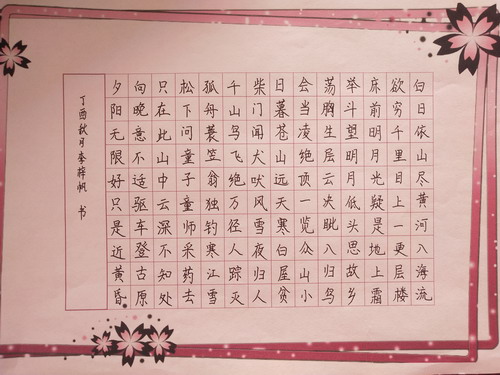 白日依山尽黄河入海流
欲穷千里目上一更层楼
床前明月光疑是地上霜
举斗望明月低头思故乡
荡胸生层云决眦入归鸟
会当凌绝顶一览众山小
日暮苍山远天寒白屋贫
柴门闻犬吠风雪夜归人
千山鸟飞绝万径人踪灭
孤舟蓑笠翁独钓寒江雪
松下问童子童师采药去
只在此山中云深不知处
向晚意不适驱车登古原
夕阳无限好只是近黄昏
丁酉秋月李梓帆 书